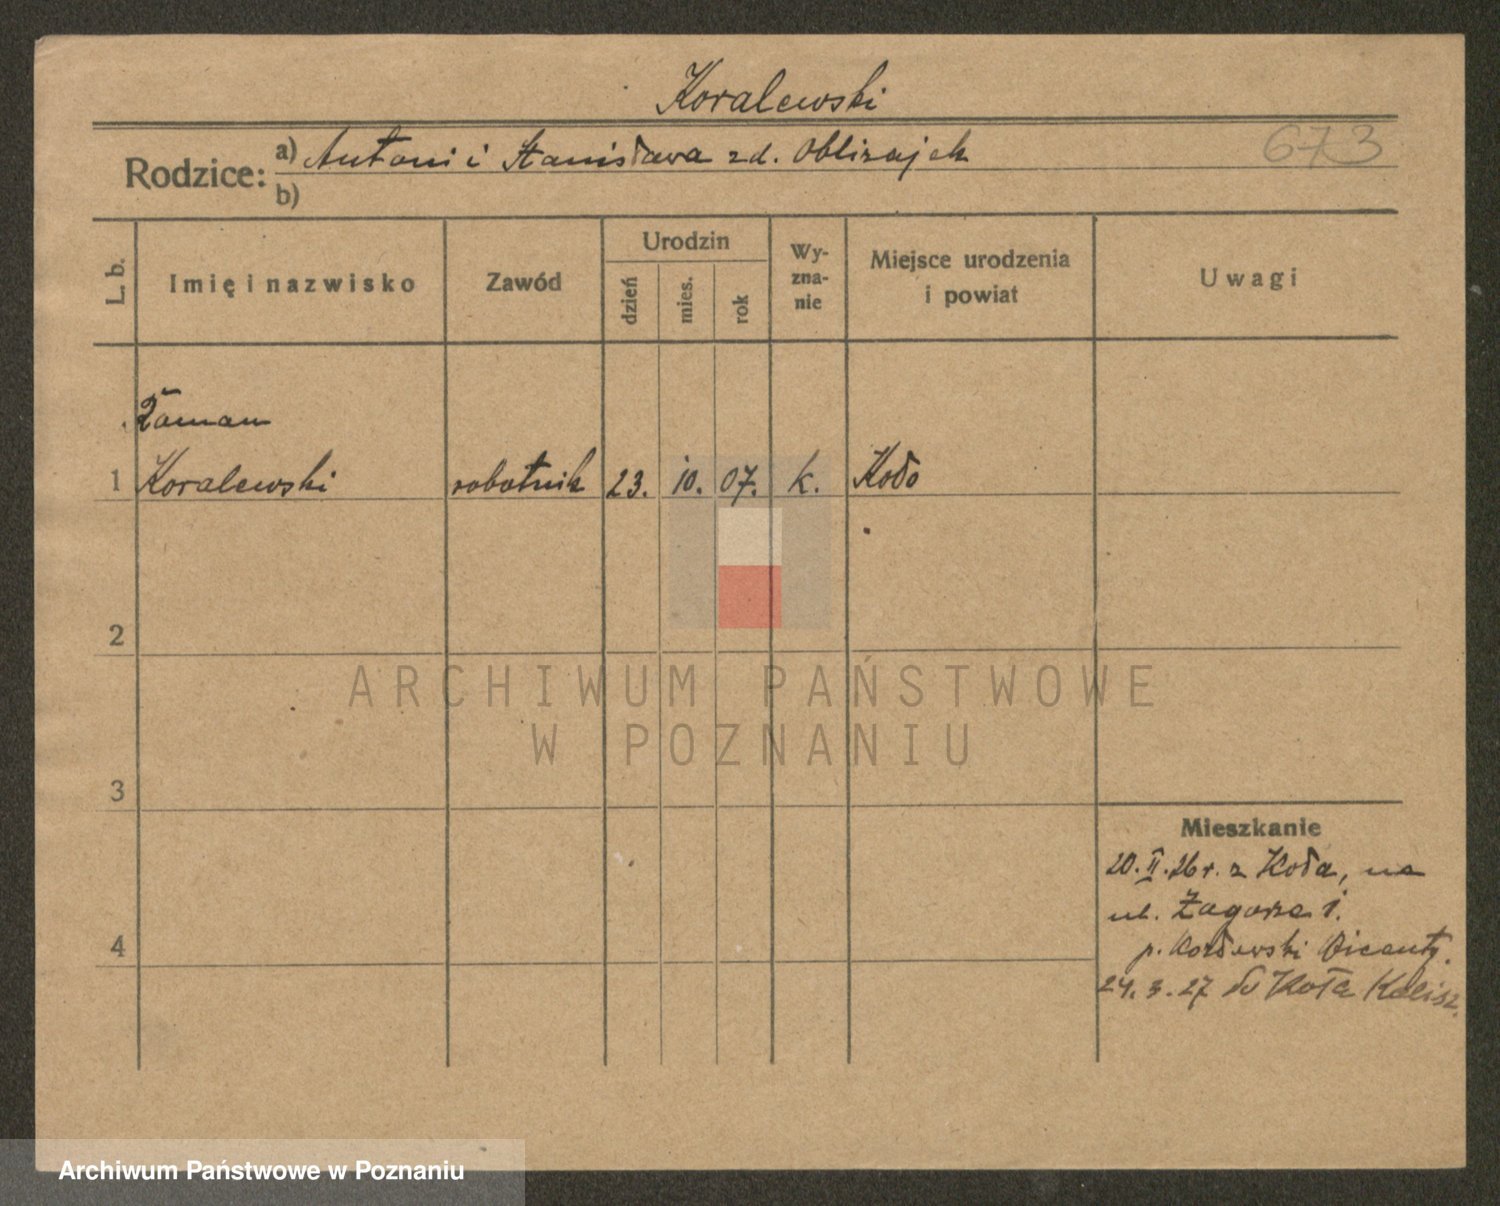 Koralewski
673
Rodzice: a) Antoni i Stanisława zd. Oblizajek
b)
L. b. Imię i nazwisko Zawód Urodzin dzień mies. rok Wyznanie Miejsce urodzenia i powiat Uwagi
Roman
1 Koralewski robotnik 23. 10. 07. k. Koło
2
3
4
Mieszkanie
20. II. 26 r. z Koła, na
ul. Zagórze 1.
p.
24. 3. 27 do Koła Kalisz.
ARCHIWUM PAŃSTWOWE
W POZNANIU
Archiwum Państwowe w Poznaniu